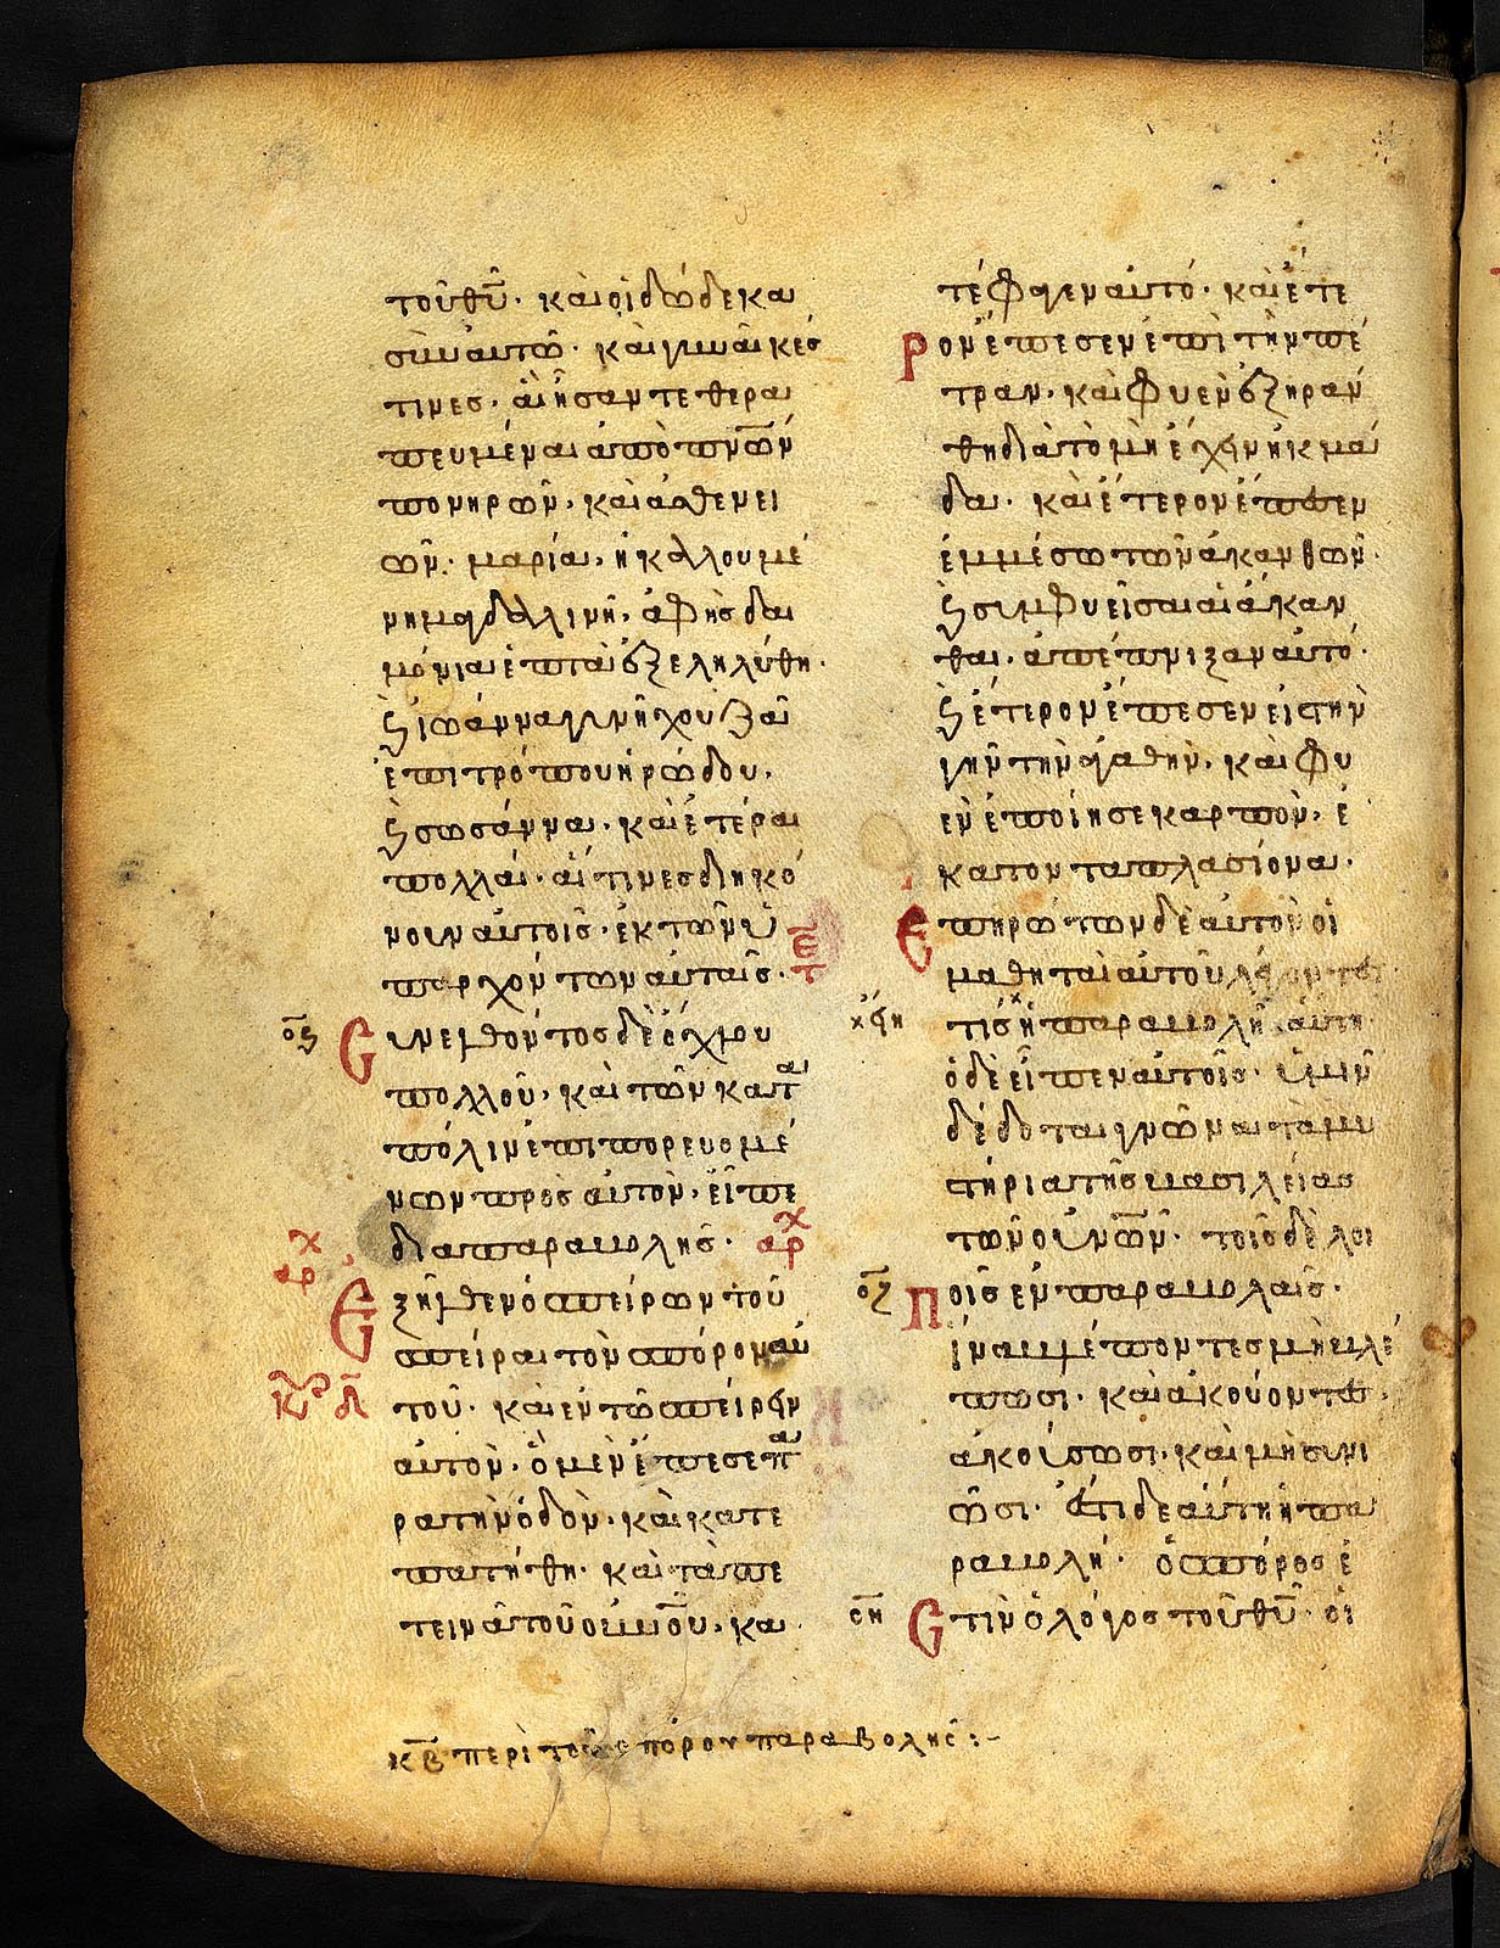 τοῦ θ̅υ̅. καὶ οἱ δώδεκα
σὺν αὐτῶ. καὶ γυναῖκές
τινες. αἳ ἦσαν τεθερα
πευμέναι ἀπὸ π̅ν̅ω̅ν
πονηρῶν, καὶ ἀσθενει
ῶν. μαρία, ἡ καλλουμέ
νη μαγδαλινή, ἀφ ἧς δαι
μόνια ἑπτὰ ἐξεληλύθη.
ϗ ἰωάννα γυνὴ χουζᾶ
ἐπιτρόπου ἡρώδου,
ϗ σωσάννα. καὶ ἕτεραι
πολλαί. αἵτινες διηκό
νουν αὐτοῖς. ἐκ τῶν ὑ
παρχόντων αὐταῖς. τε̅
ος̅ Συνελθόντος δὲ ὄχλου
πολλοῦ, καὶ τῶν κατ̅α̅
πόλιν ἐπιπορευομέ
νων πρὸς αὐτὸν, εἶπε
διαπαραβολῆς. αρχ
αρχ
Ἐξῆλθεν ὁ σπείρων τοῦ
σπεῖραι τὸν σπόρον αὐ
κυ̅ δ̅ τοῦ. καὶ ἐν τῶ σπείρειν
αὐτὸν. ὃ μὲν ἔπεσε πα
ρα τὴν ὁδὸν. καὶ κατε
πατήθη. καὶ τὰ πε
τεινὰ τοῦ ο̅υ̅ν̅ο̅υ, κα
τέφαγεν αὐτό. καὶ ἕτε
ρον ἔπεσεν ἐπὶ τὴν πέ
τραν. καὶ φυὲν ἐξηράν
θη διὰ τὸ μὴ ἔχειν ἱκμά
δα. καὶ ἕτερον ἔπεσεν
ἐμμέσω τῶν ἀκανθῶν.
ϗ συμφυεῖσαι αἱ ἄκαν
θαι. ἀπέπνιξαν αὐτό.
ϗ ἕτερον ἔπεσεν εἰς τὴν
γῆν τὴν ἀγαθὴν. καὶ φυ
ὲν ἐποίησε καρπὸν, ἑ
κατονταπλασίονα.
Ἐπηρώτων δὲ αὐτὸν οἱ
μαθηταὶ αὐτοῦ λέγοντες
τίς ἡ παραβολὴ αὕτη.
ὁ δὲ εἶπεν αὐτοῖς. ὑμῖν
δέδοται γνῶναι τὰ μυ
στήρια τῆς βασιλείας
τῶν ο̅υ̅ν̅ω̅ν. τοῖς δὲ λοι
οζ̅ ποῖς ἐν παραβολαῖς.
ἵνα βλέποντες μὴ βλέ
πωσι. καὶ ἀκούοντες
ἀκούσωσι. καὶ μὴ συνι
ῶσι. ἔστι δε αὕτη ἡ πα
ραβολή. ὁ σπόρος ἐ
οη̅ στὶν ὁ λόγος τοῦ θ̅υ̅. οἱ
κ̅β̅ περὶ τοῦ σπόρου παραβολῆς:-